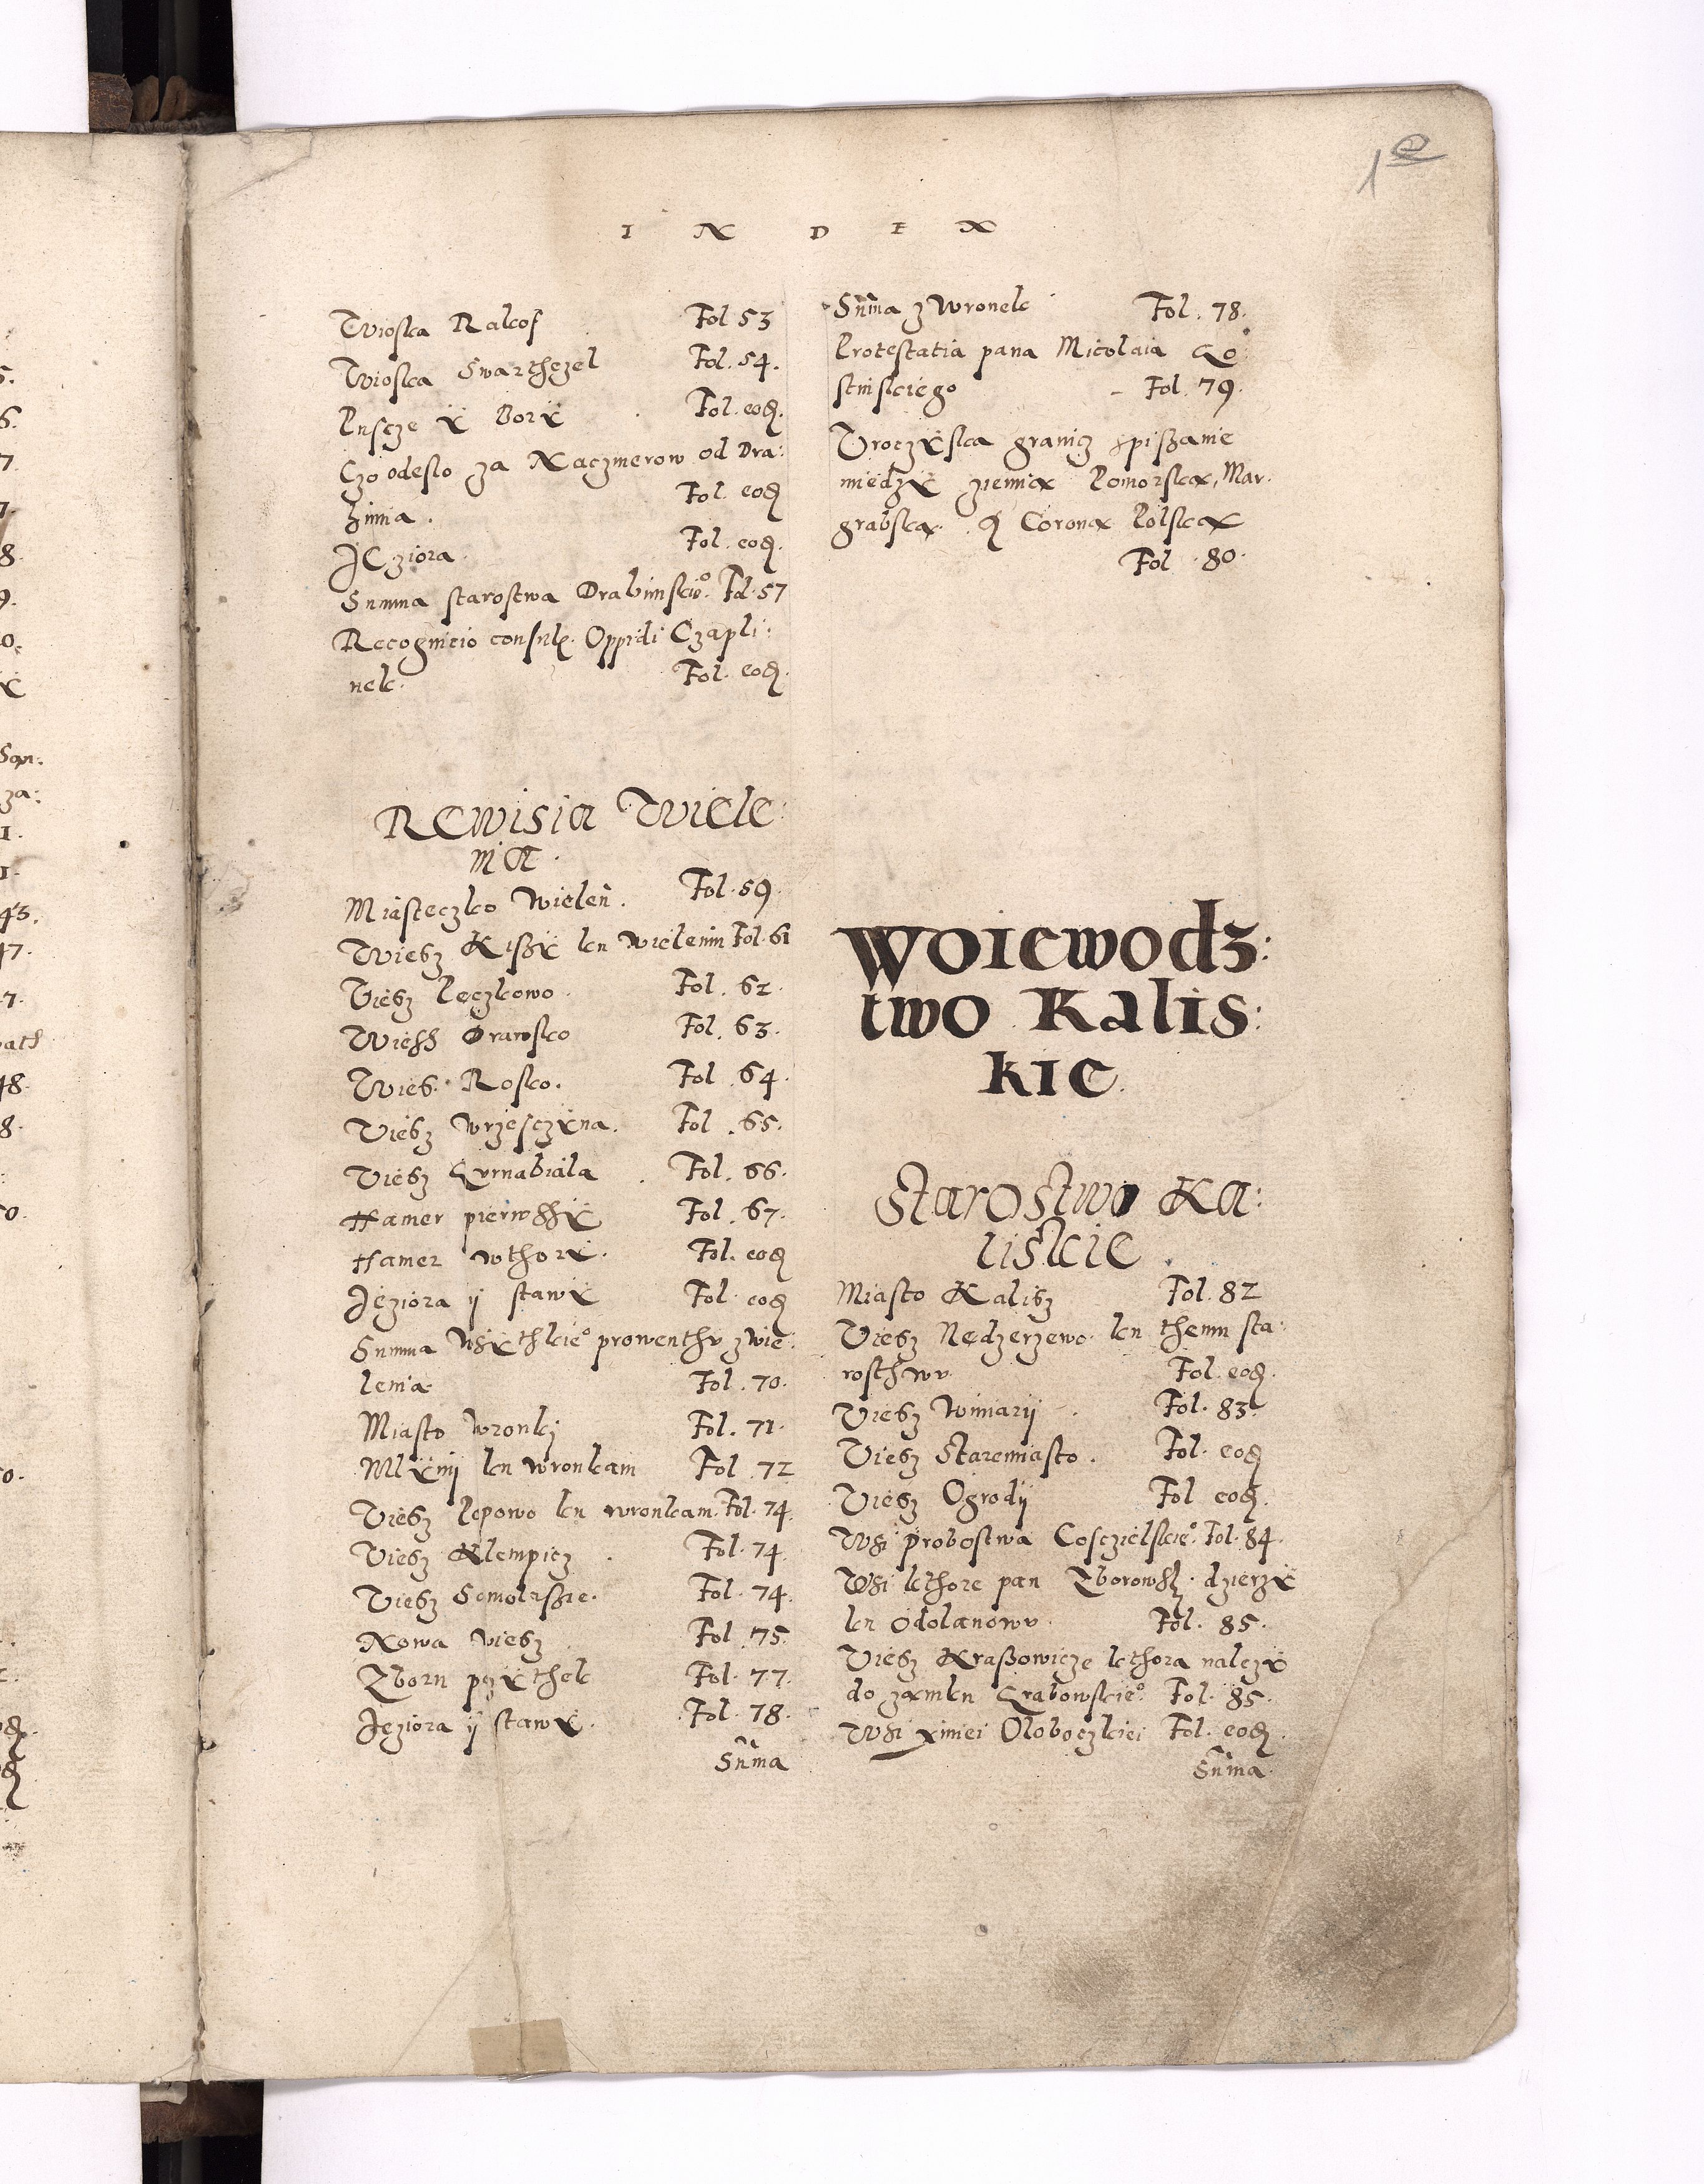 1e
INDEX
Wioska Rakof Fol 53
Wioska Swarthczel Fol. 54.
Puscze ÿ Borÿ Fol. eod.
Czo odeslo za Kaczmerow od Dra:
himia. Fol. eod
JEziora. Fol. eod.
Summa starostwa Drahimskio. Fol. 57
Recognicio consulū Oppidi Czapli:
nek. Fol. eod.
REwisia Wiele:
nia.
Miasteczko Wieleń. Fol. 59
Wiesz Kiszÿ ku wieleniu Fol. 61
Wiesz Peczkowo. Fol. 62
Wiessz Drawsko Fol. 63.
Wies. Rosko. Fol. 64.
Wiesz Wrzesczÿna. Fol. 65.
Wiesz Gurnabiala. Fol. 66.
Hamer pierwsshÿ Fol. 67.
Hamer wthorÿ. Fol. eod
Jeziora ij stawÿ Fol. eod
Summa Wsÿthkieo prowenthv zwie:
lenia. Fol. 70.
Miasto Wronkj Fol. 71.
Mlÿnij ku wronkam Fol. 72
Wiesz Popowo ku wronkam. Fol. 74.
Wiesz Klempicz. Fol. 74.
Wiesz Smolksze. Fol. 74.
Nowa wiesz Fol. 75.
Zboru pozÿthek Fol. 77.
Jeziora ij stawÿ. Fol. 78.
Sūma
Sūma z Wronek Fol. 78.
Protestatia pana Micolaia Go
stinskiego Fol. 79.
Vroczÿska granicz spiszanie
miedzÿ ziemia Pomorska, Mar:
grabska. ij Corona Polska
Fol. 80.
Woiewodz:
two Kalis:
kie.
Starostwo Ka:
liskie.
Miasto Kalisz Fol. 82
Wiesz Nedzerzewo. ku themu sta:
rosthwv Fol. eod.
Wiesz Winiarij. Fol. 83.
Wiesz Staremiasto. Fol. eod
Wiesz Ogrodij Fol eod.
Wsi probostwa Cosczielskieo. Fol. 84.
Wsi kthore pan Zborowskj. dzierzÿ
ku Odolanowv Fol. 85.
Wiesz Kraszowicze kthora nalezÿ
do zamku Grabowskieo. Fol. 85.
Wsi ximei Oloboczkiei Fol. eod.
Sūma